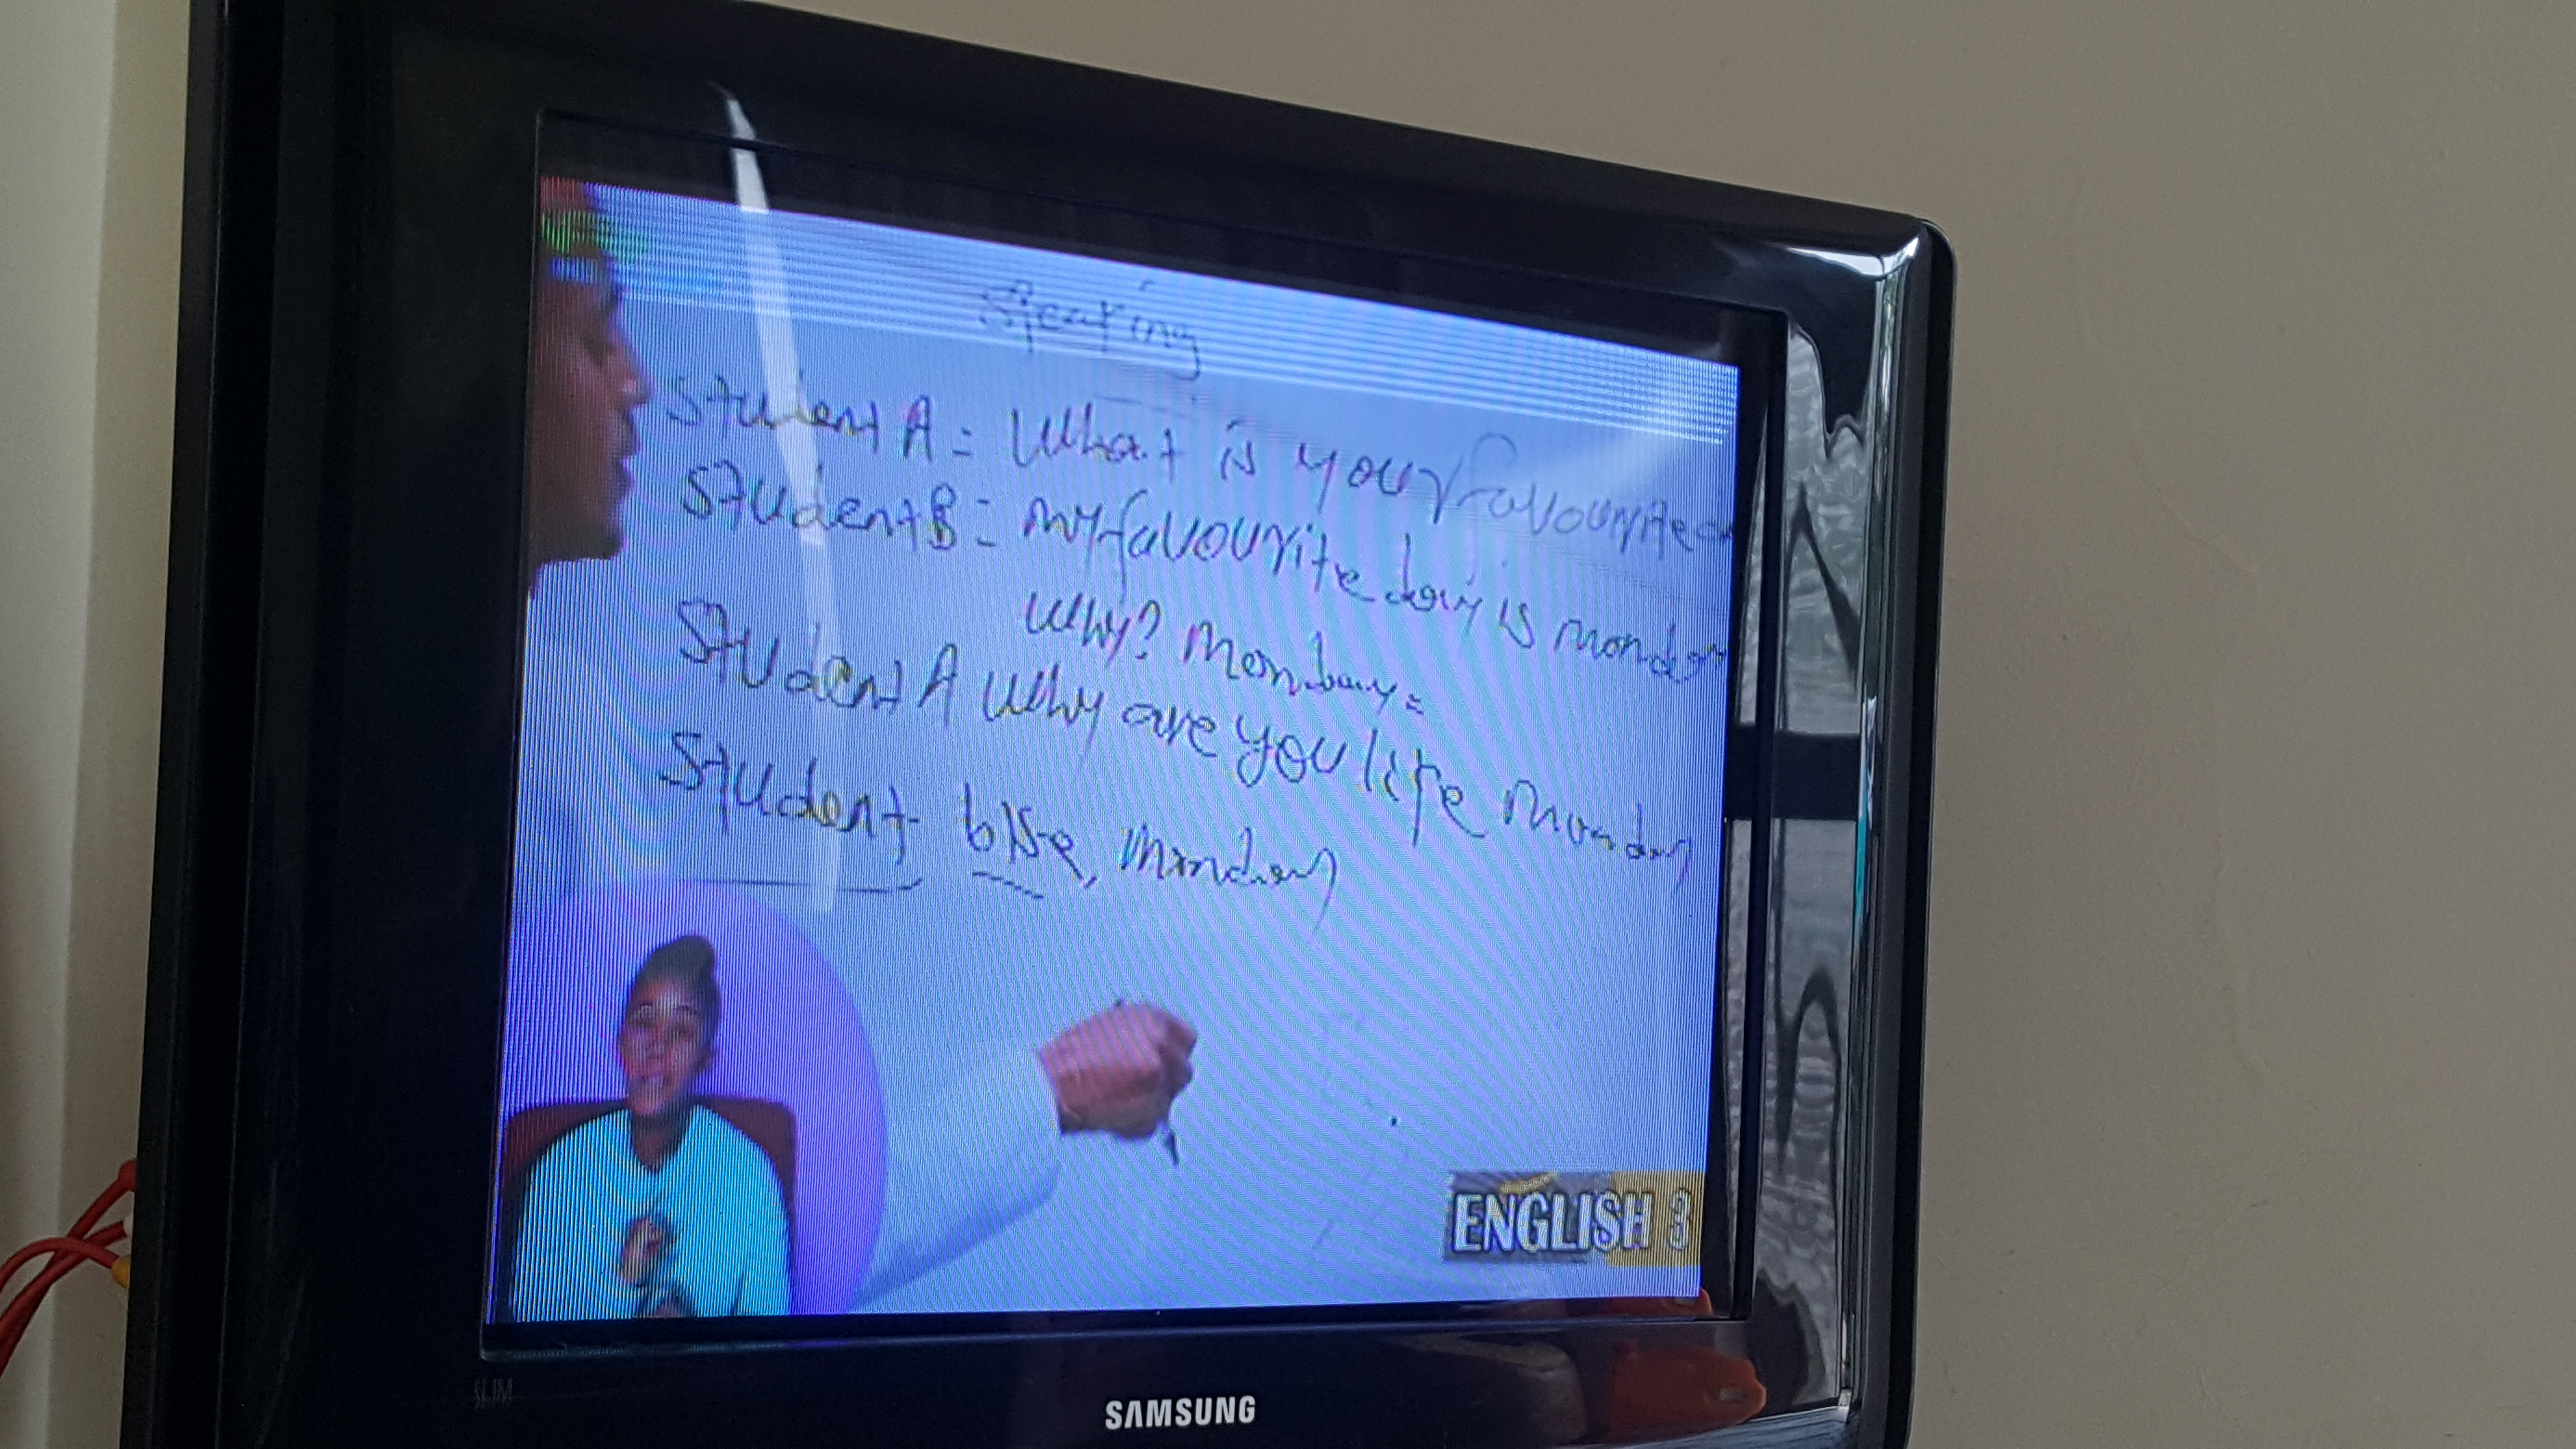 Speaking
Student A = What is your favourite
Student B = my favourite day is monday
Why? Monday =
Student A Why are you like Monday
Student b Monday
ENGLISH 3
SLIM
SAMSUNG